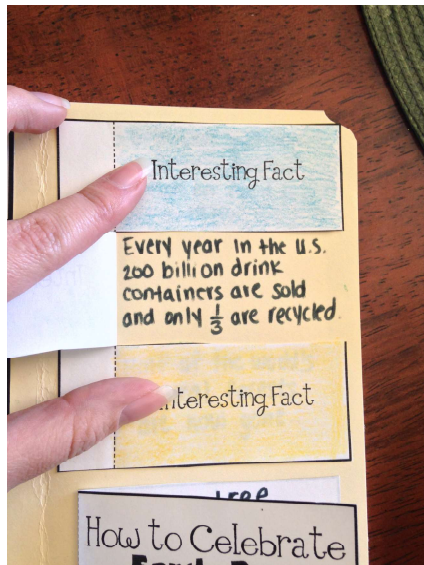 Interesting Fact
Every year in the U.S.
200 billion drink
containers are sold
and only 1/3 are recycled.
Interesting Fact
tree
How to Celebrate